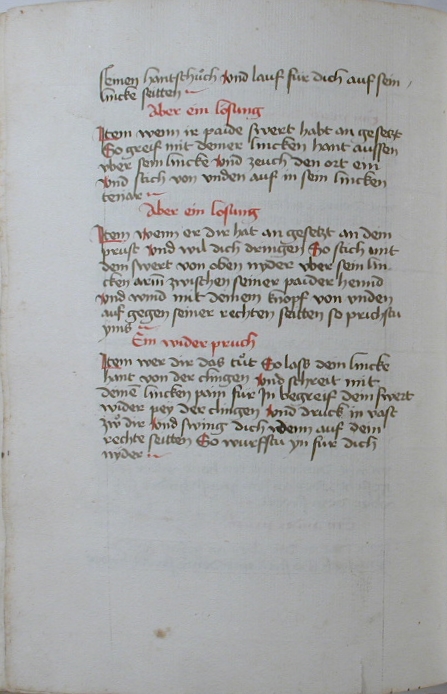 seinen hantschüch Und lauf für dich auf sein
lincke seitten
Aber ein losung
Item wenn ir paide swert habt an gesetzt
So greif mit deiner lincken hant aussen
vber sein lincke Und zeuch den ort ein
Und stich von vnden auf in sein lincken
tenar
Aber ein losung
Item wenn er dir hat an gesetzt an dem
prust Und wil dich dringen So stich mit
dem swert von oben nyder vber sein lin
cken arm zwischen seiner paider hennd
Und wind mit deinem knopf von vnden
auf gegen seiner rechten seitten so prichstu
yms
Ein wider pruch
Item wer dir das tut So lass dein lincke
hant von der clingen Und schreit mit
deinem lincken pain für In begreif dein swert
wider pey der clingen Und druck in vast
zw dir Und swing dich denn auf dein
rechte seitten So wurffstu yn für dich
nyder